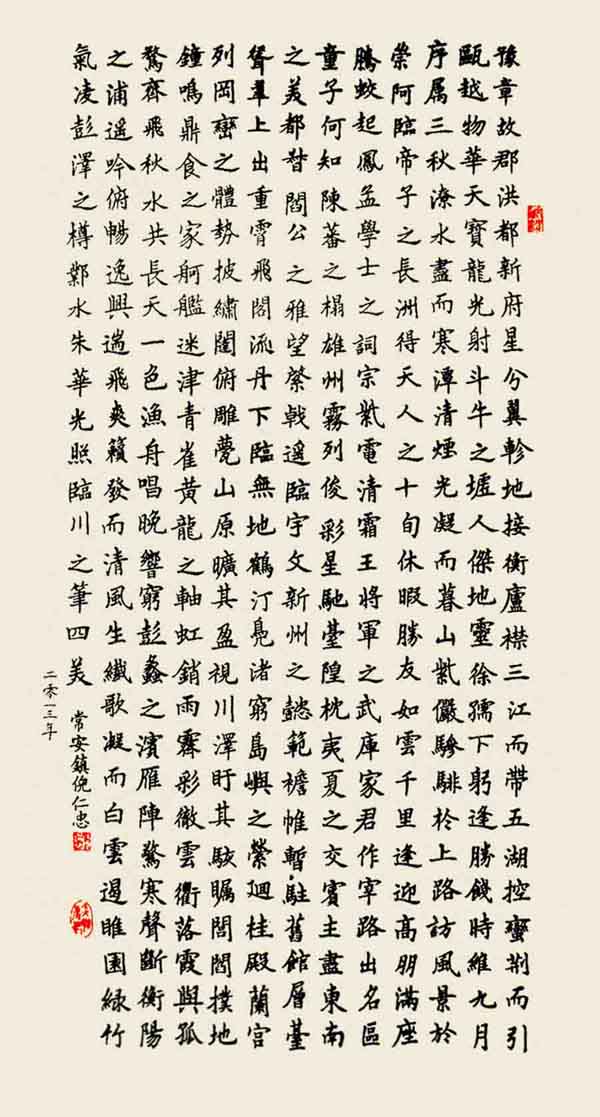 豫章故郡洪都新府星分翼軫地接衡廬襟三江而帶五湖控蠻荊而引
甌越物華天寶龍光射斗牛之墟人傑地靈徐孺下躬逢勝餞時維九月
序属三秋潦水盡而寒潭清煙光凝而暮山紫儼驂騑於上路訪風景於
崇阿臨帝子之長洲得天人之十旬休暇勝友如雲千里逢迎高朋滿座
騰蛟起鳳孟學士之詞宗紫電清霜王將軍之武庫家君作宰路出名區
童子何知陳蕃之榻雄州霧列俊彩星馳臺隍枕夷夏之交賓主盡東南
之美都督閻公之雅望棨戟遥臨宇文新州之懿範襜帷暫駐舊館層臺
聳翠上出重霄飛閣流丹下臨無地鶴汀鳧渚窮島嶼之縈迴桂殿蘭宮
列岡巒之體勢披繡闥俯雕甍山原曠其盈視川澤盱其駭矚閭閻撲地
鐘鳴鼎食之家舸艦迷津青雀黃龍之軸虹銷雨霽彩徹雲衢落霞與孤
鶩齊飛秋水共長天一色漁舟唱晚響窮彭蠡之濱雁陣驚寒聲斷衡陽
之浦遥吟俯暢逸興遄飛爽籟發而清風生纖歌凝而白雲遏睢園綠竹
氣凌彭澤之樽鄴水朱華光照臨川之筆四美
常安鎮倪仁忠
二零一三年